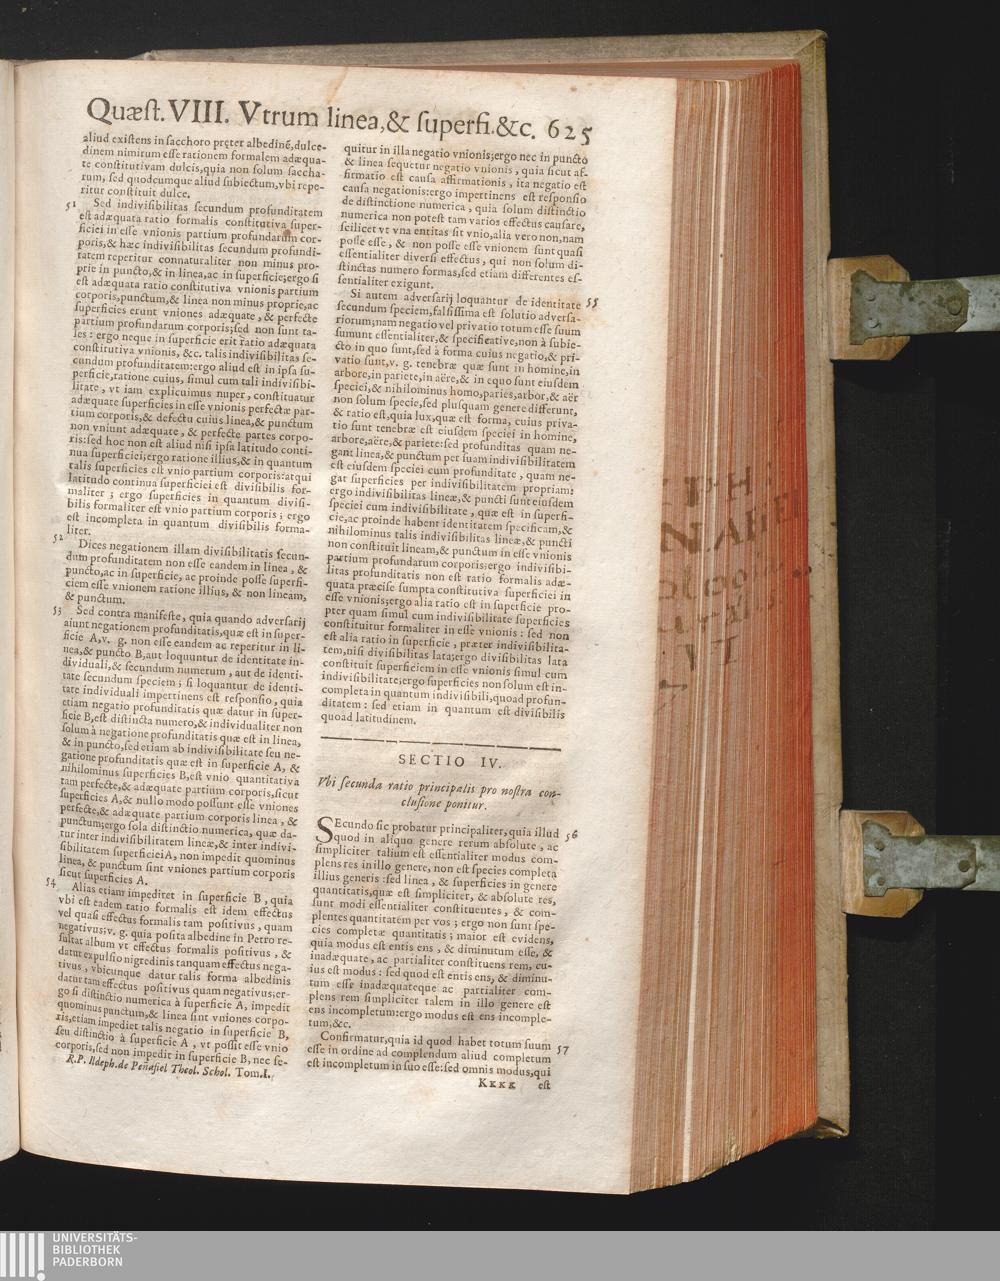 Quæst. VIII. Vtrum linea, & superfi. &c. 625
aliud existens in sacchoro pręter albedinẽ, dulce-
dinem nimirum esse rationem formalem adæqua-
te constitutivam dulcis, quia non solum saccha-
rum, sed quodcumque aliud subiectum, vbi repe-
ritur constituit dulce.
51 Sed indivisibilitas secundum profunditatem
est adæquata ratio formalis constitutiva super-
ficiei in esse vnionis partium profundarum cor-
poris, & hæc indivisibilitas secundum profundi-
tatem reperitur connaturaliter non minus pro-
prie in puncto, & in linea, ac in superficie; ergo si
est adæquata ratio constitutiva vnionis partium
corporis, punctum, & linea non minus proprie, ac
superficies erunt vniones adæquate, & perfecte
partium profundarum corporis; sed non sunt ta-
les : ergo neque in superficie erit ratio adæquata
constitutiva vnionis, &c. talis indivisibilitas se-
cundum profunditatem: ergo aliud est in ipsa su-
perficie, ratione cuius, simul cum tali indivisibi-
litate, vt iam explicuimus nuper, constituatur
adæquate superficies in esse vnionis perfectæ par-
tium corporis, & defectu cuius linea, & punctum
non vniunt adæquate, & perfecte partes corpo-
ris: sed hoc non est aliud nisi ipsa latitudo conti-
nua superficiei; ergo ratione illius, & in quantum
talis superficies est vnio partium corporis: atqui
latitudo continua superficiei est divisibilis for-
maliter ; ergo superficies in quantum divisi-
bilis formaliter est vnio partium corporis ; ergo
est incompleta in quantum divisibilis forma-
liter.
52 Dices negationem illam divisibilitatis secun-
dum profunditatem non esse eandem in linea, &
puncto, ac in superficie, ac proinde posse superfi-
ciem esse vnionem ratione illius, & non lineam,
& punctum.
53 Sed contra manifeste, quia quando adversarij
aiunt negationem profunditatis, quæ est in super-
ficie A, v. g. non esse eandem ac reperitur in li-
nea, & puncto B, aut loquuntur de identitate in-
dividuali, & secundum numerum, aut de identi-
tate secundum speciem ; si loquantur de identi-
tate individuali impertinens est responsio, quia
etiam negatio profunditatis quæ datur in super-
ficie B, est distincta numero, & individualiter non
solum à negatione profunditatis quæ est in linea,
& in puncto, sed etiam ab indivisibilitate seu ne-
gatione profunditatis quæ est in superficie A, &
nihilominus superficies B, est vnio quantitativa
tam perfecte, & adæquate partium corporis, sicut
superficies A, & nullo modo possunt esse vniones
perfecte, & adæquate partium corporis linea, &
punctum; ergo sola distinctio numerica, quæ da-
tur inter indivisibilitatem lineæ, & inter indivi-
sibilitatem superficiei A, non impedit quominus
linea, & punctum sint vniones partium corporis
sicut superficies A.
54 Alias etiam impediret in superficie B, quia
vbi est eadem ratio formalis est idem effectus
vel quasi effectus formalis tam positivus, quam
negativus; v. g. quia posita albedine in Petro re-
sultat album vt effectus formalis positivus, &
datur expulsio nigredinis tanquam effectus nega-
tivus, vbicunque datur talis forma albedinis
datur tam effectus positivus quam negativus; er-
go si distinctio numerica à superficie A, impedit
quominus punctum, & linea sint vniones corpo-
ris, etiam impediet talis negatio in superficie B,
seu distinctio à superficie A, vt possit esse vnio
corporis, sed non impedit in superficie B, nec se-
R.P. Ildeph. de Peñafiel Theol. Schol. Tom. I.
quitur in illa negatio vnionis; ergo nec in puncto
& linea sequetur negatio vnionis, quia sicut af-
firmatio est causa affirmationis, ita negatio est
causa negationis: ergo impertinens est responsio
de distinctione numerica, quia solum distinctio
numerica non potest tam varios effectus causare,
scilicet vt vna entitas sit vnio, alia vero non, nam
posse esse, & non posse esse vnionem sunt quasi
essentialiter diversi effectus, qui non solum di-
stinctas numero formas, sed etiam differentes es-
sentialiter exigunt.
Si autem adversarij loquantur de identitate 55
secundum speciem, falsissima est solutio adversa-
riorum; nam negatio vel privatio totum esse suum
sumunt essentialiter, & specificative, non à subie-
cto in quo sunt, sed à forma cuius negatio, & pri-
vatio sunt, v. g. tenebræ quæ sunt in homine, in
arbore, in pariete, in aëre, & in equo sunt eiusdem
speciei, & nihilominus homo, paries, arbor, & aër
non solum specie, sed plusquam genere differunt,
& ratio est, quia lux, quæ est forma, cuius priva-
tio sunt tenebræ est eiusdem speciei in homine,
arbore, aëre, & pariete: sed profunditas quam ne-
gant linea, & punctum per suam indivisibilitatem
est eiusdem speciei cum profunditate, quam ne-
gat superficies per indivisibilitatem propriam:
ergo indivisibilitas lineæ, & puncti sunt eiusdem
speciei cum indivisibilitate, quæ est in superfi-
cie, ac proinde habent identitatem specificam, &
nihilominus talis indivisibilitas lineæ, & puncti
non constituit lineam, & punctum in esse vnionis
partium profundarum corporis: ergo indivisibi-
litas profunditatis non est ratio formalis adæ-
quata præcise sumpta constitutiva superficiei in
esse vnionis; ergo alia ratio est in superficie pro-
pter quam simul cum indivisibilitate superficies
constituitur formaliter in esse vnionis : sed non
est alia ratio in superficie, præter indivisibilita-
tem, nisi divisibilitas lata; ergo divisibilitas lata
constituit superficiem in esse vnionis simul cum
indivisibilitate; ergo superficies non solum est in-
completa in quantum indivisibili, quoad profun-
ditatem : sed etiam in quantum est divisibilis
quoad latitudinem.
SECTIO IV.
Vbi secunda ratio principalis pro nostra con-
clusione ponitur.
SEcundo sic probatur principaliter, quia illud 56
quod in aliquo genere rerum absolute, ac
simpliciter talium est essentialiter modus com-
plens res in illo genere, non est species completa
illius generis : sed linea, & superficies in genere
quantitatis, quæ est simpliciter, & absolute res,
sunt modi essentialiter constituentes, & com-
plentes quantitatem per vos ; ergo non sunt spe-
cies completæ quantitatis ; maior est evidens,
quia modus est entis ens, & diminutum esse, &
inadæquate, ac partialiter constituens rem, cu-
ius est modus : sed quod est entis ens, & diminu-
tum esse inadæquateque ac partialiter com-
plens rem simpliciter talem in illo genere est
ens incompletum: ergo modus est ens incomple-
tum, &c.
Confirmatur, quia id quod habet totum suum 57
esse in ordine ad complendum aliud completum
est incompletum in suo esse: sed omnis modus, qui
Kkkk est
UNIVERSITÄTS-
BIBLIOTHEK
PADERBORN